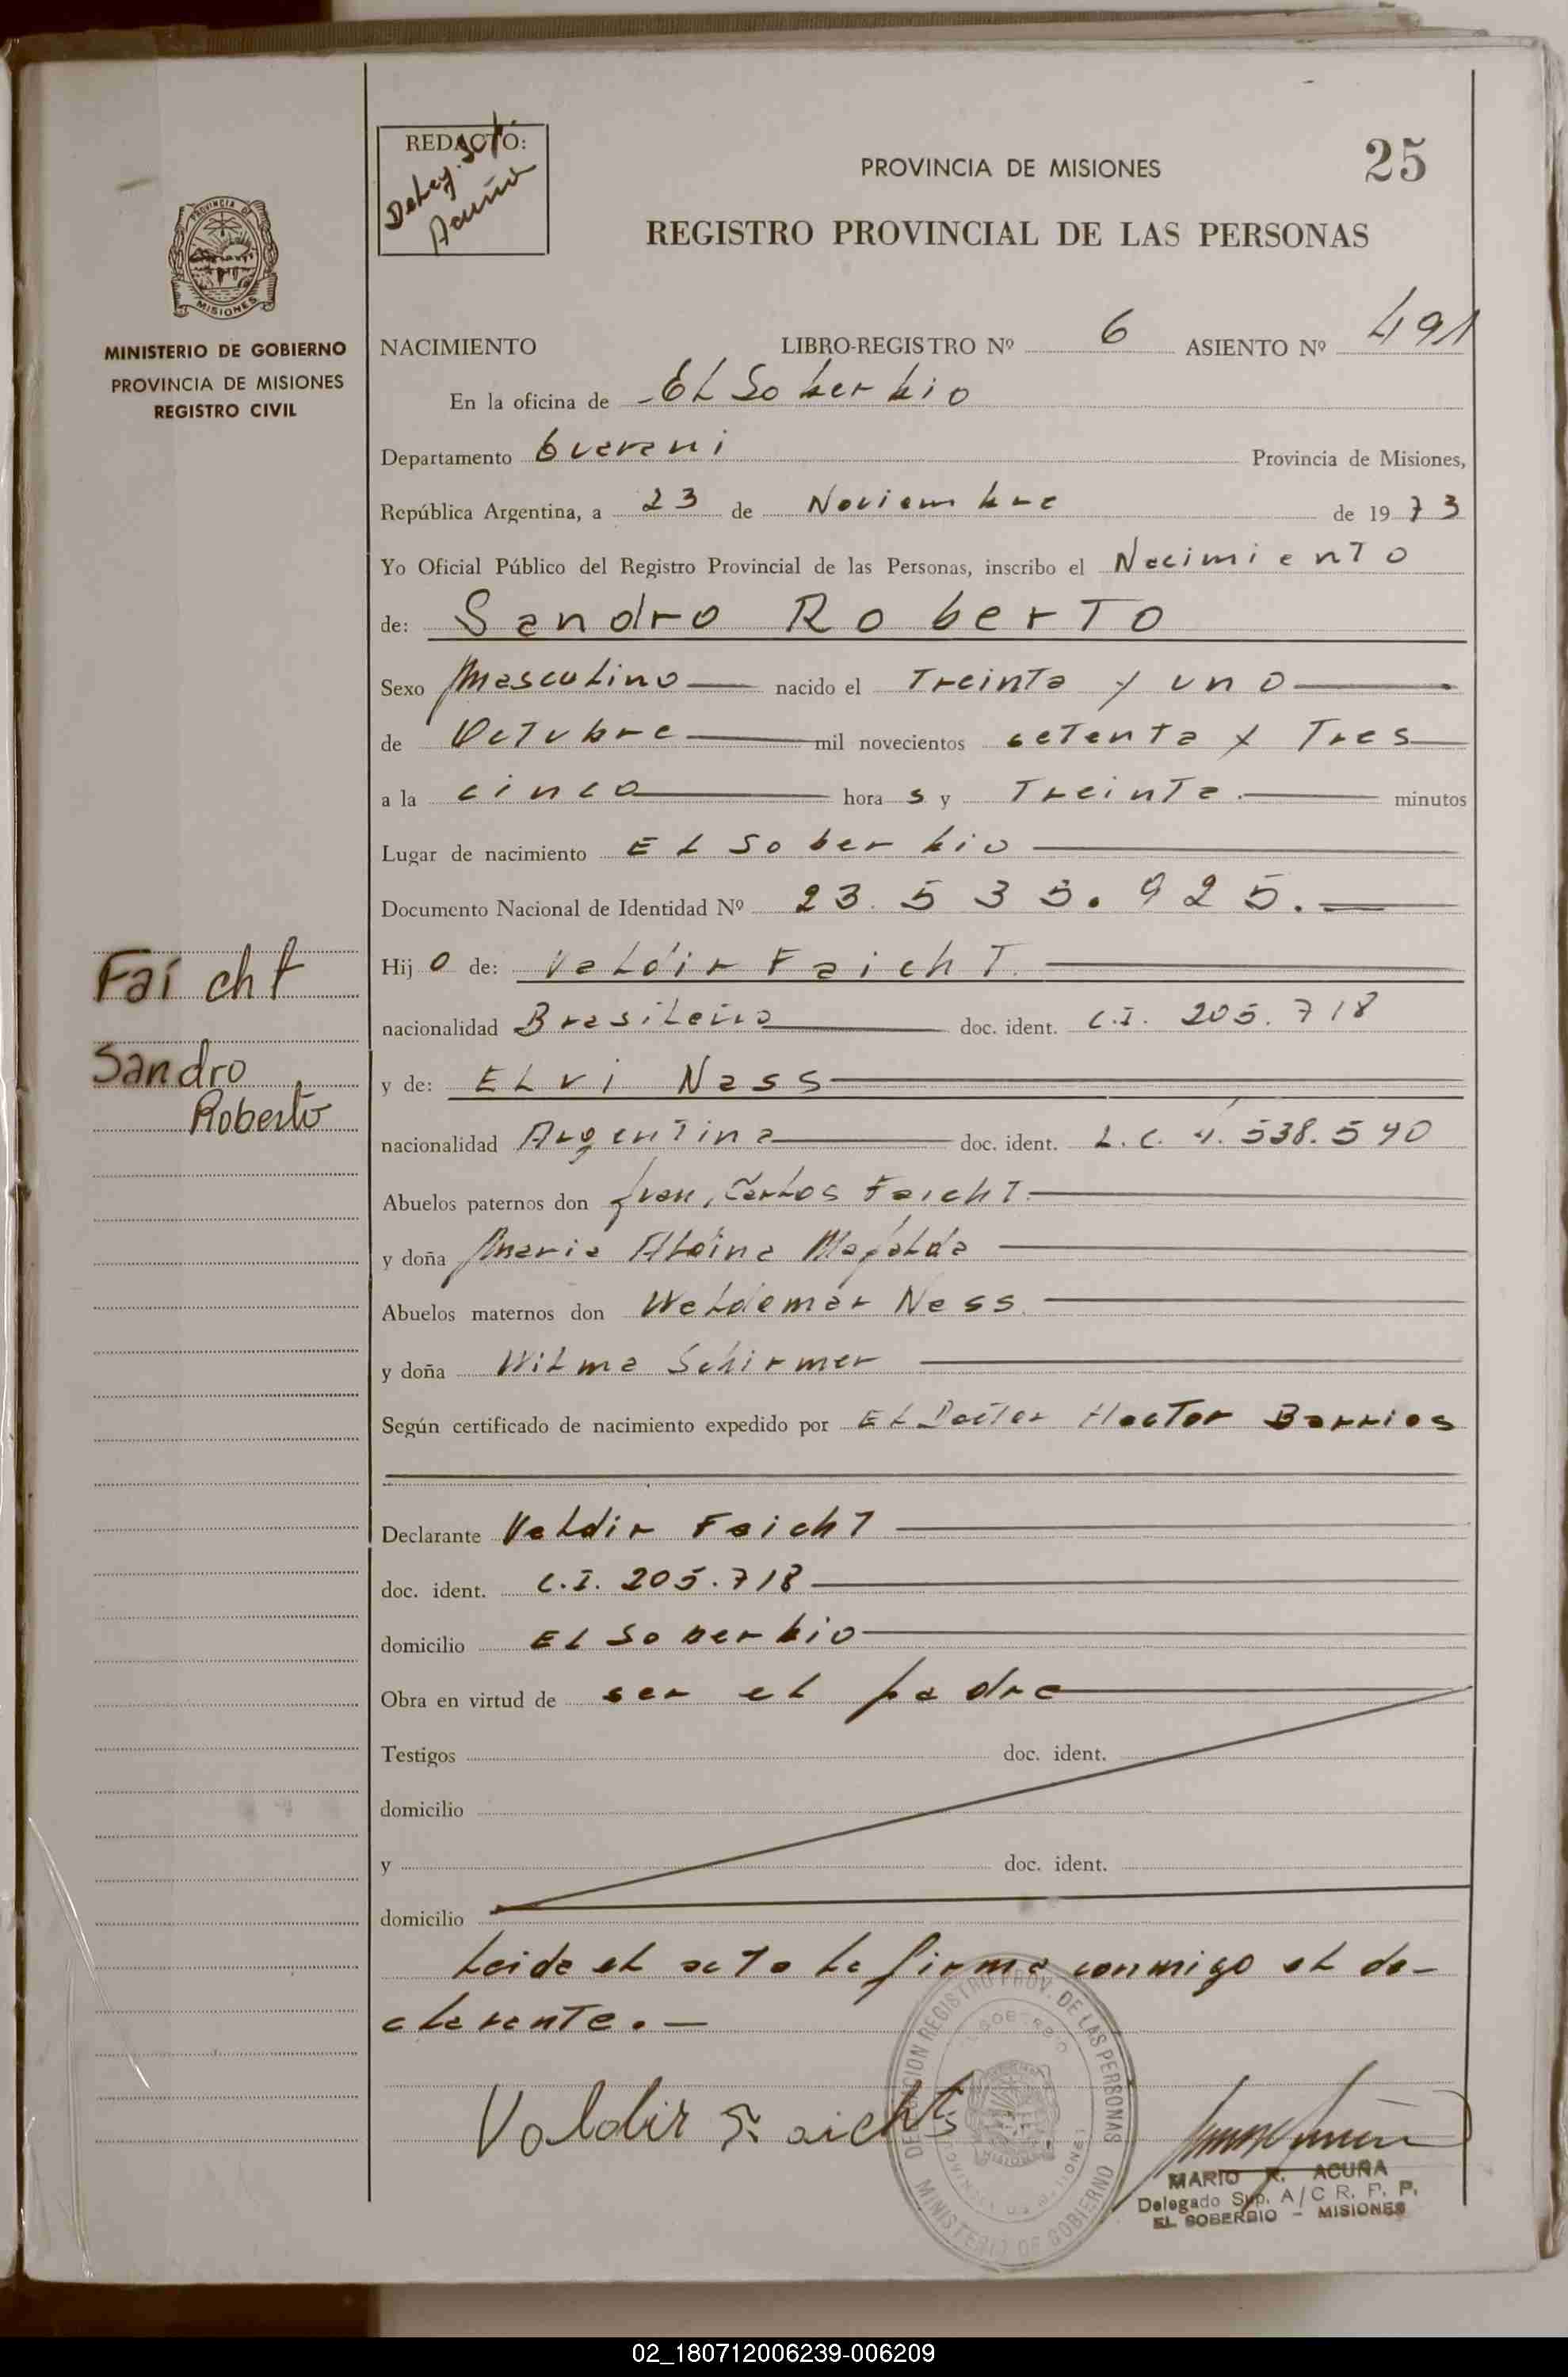 REDACTÓ:
Deleg. Sosto.
Acuña
PROVINCIA DE MISIONES
25
REGISTRO PROVINCIAL DE LAS PERSONAS
PROVINCIA DE
MISIONES
MINISTERIO DE GOBIERNO
PROVINCIA DE MISIONES
REGISTRO CIVIL
NACIMIENTO LIBRO-REGISTRO Nº 6 ASIENTO Nº 491
En la oficina de El Soberbio
Departamento Guarani Provincia de Misiones,
República Argentina, a 23 de Noviembre de 1973
Yo Oficial Público del Registro Provincial de las Personas, inscribo el Nacimiento
de: Sandro Roberto
Sexo Masculino nacido el Treinta y uno
de Octubre mil novecientos setenta y Tres
a la cinco hora s y Treinta minutos
Lugar de nacimiento El Soberbio
Documento Nacional de Identidad Nº 23.535.925.
Hij o de: Valdir Faicht.
nacionalidad Brasileira doc. ident. C.I. 205.718
y de: Elvi Nass
nacionalidad Argentina doc. ident. L.C. 4.538.540
Abuelos paternos don Juan Carlos Faicht.
y doña Maria Aldina Mafalda
Abuelos maternos don Waldemar Nass.
y doña Wilma Schirmer
Según certificado de nacimiento expedido por El Doctor Hector Barrios
Declarante Valdir Faicht
doc. ident. C.I. 205.718
domicilio El Soberbio
Obra en virtud de ser el padre
Testigos doc. ident.
domicilio
y doc. ident.
domicilio
Leida el acta la firma conmigo el de-
clarante.-
Faicht
Sandro
Roberto
Valdir Faicht
DELEGACION REGISTRO PROV. DE LAS PERSONAS
MINISTERIO DE GOBIERNO
MARIO R. ACUÑA
Delegado Sup. A/C R. P. P.
EL SOBERBIO - MISIONES
02_180712006239-006209